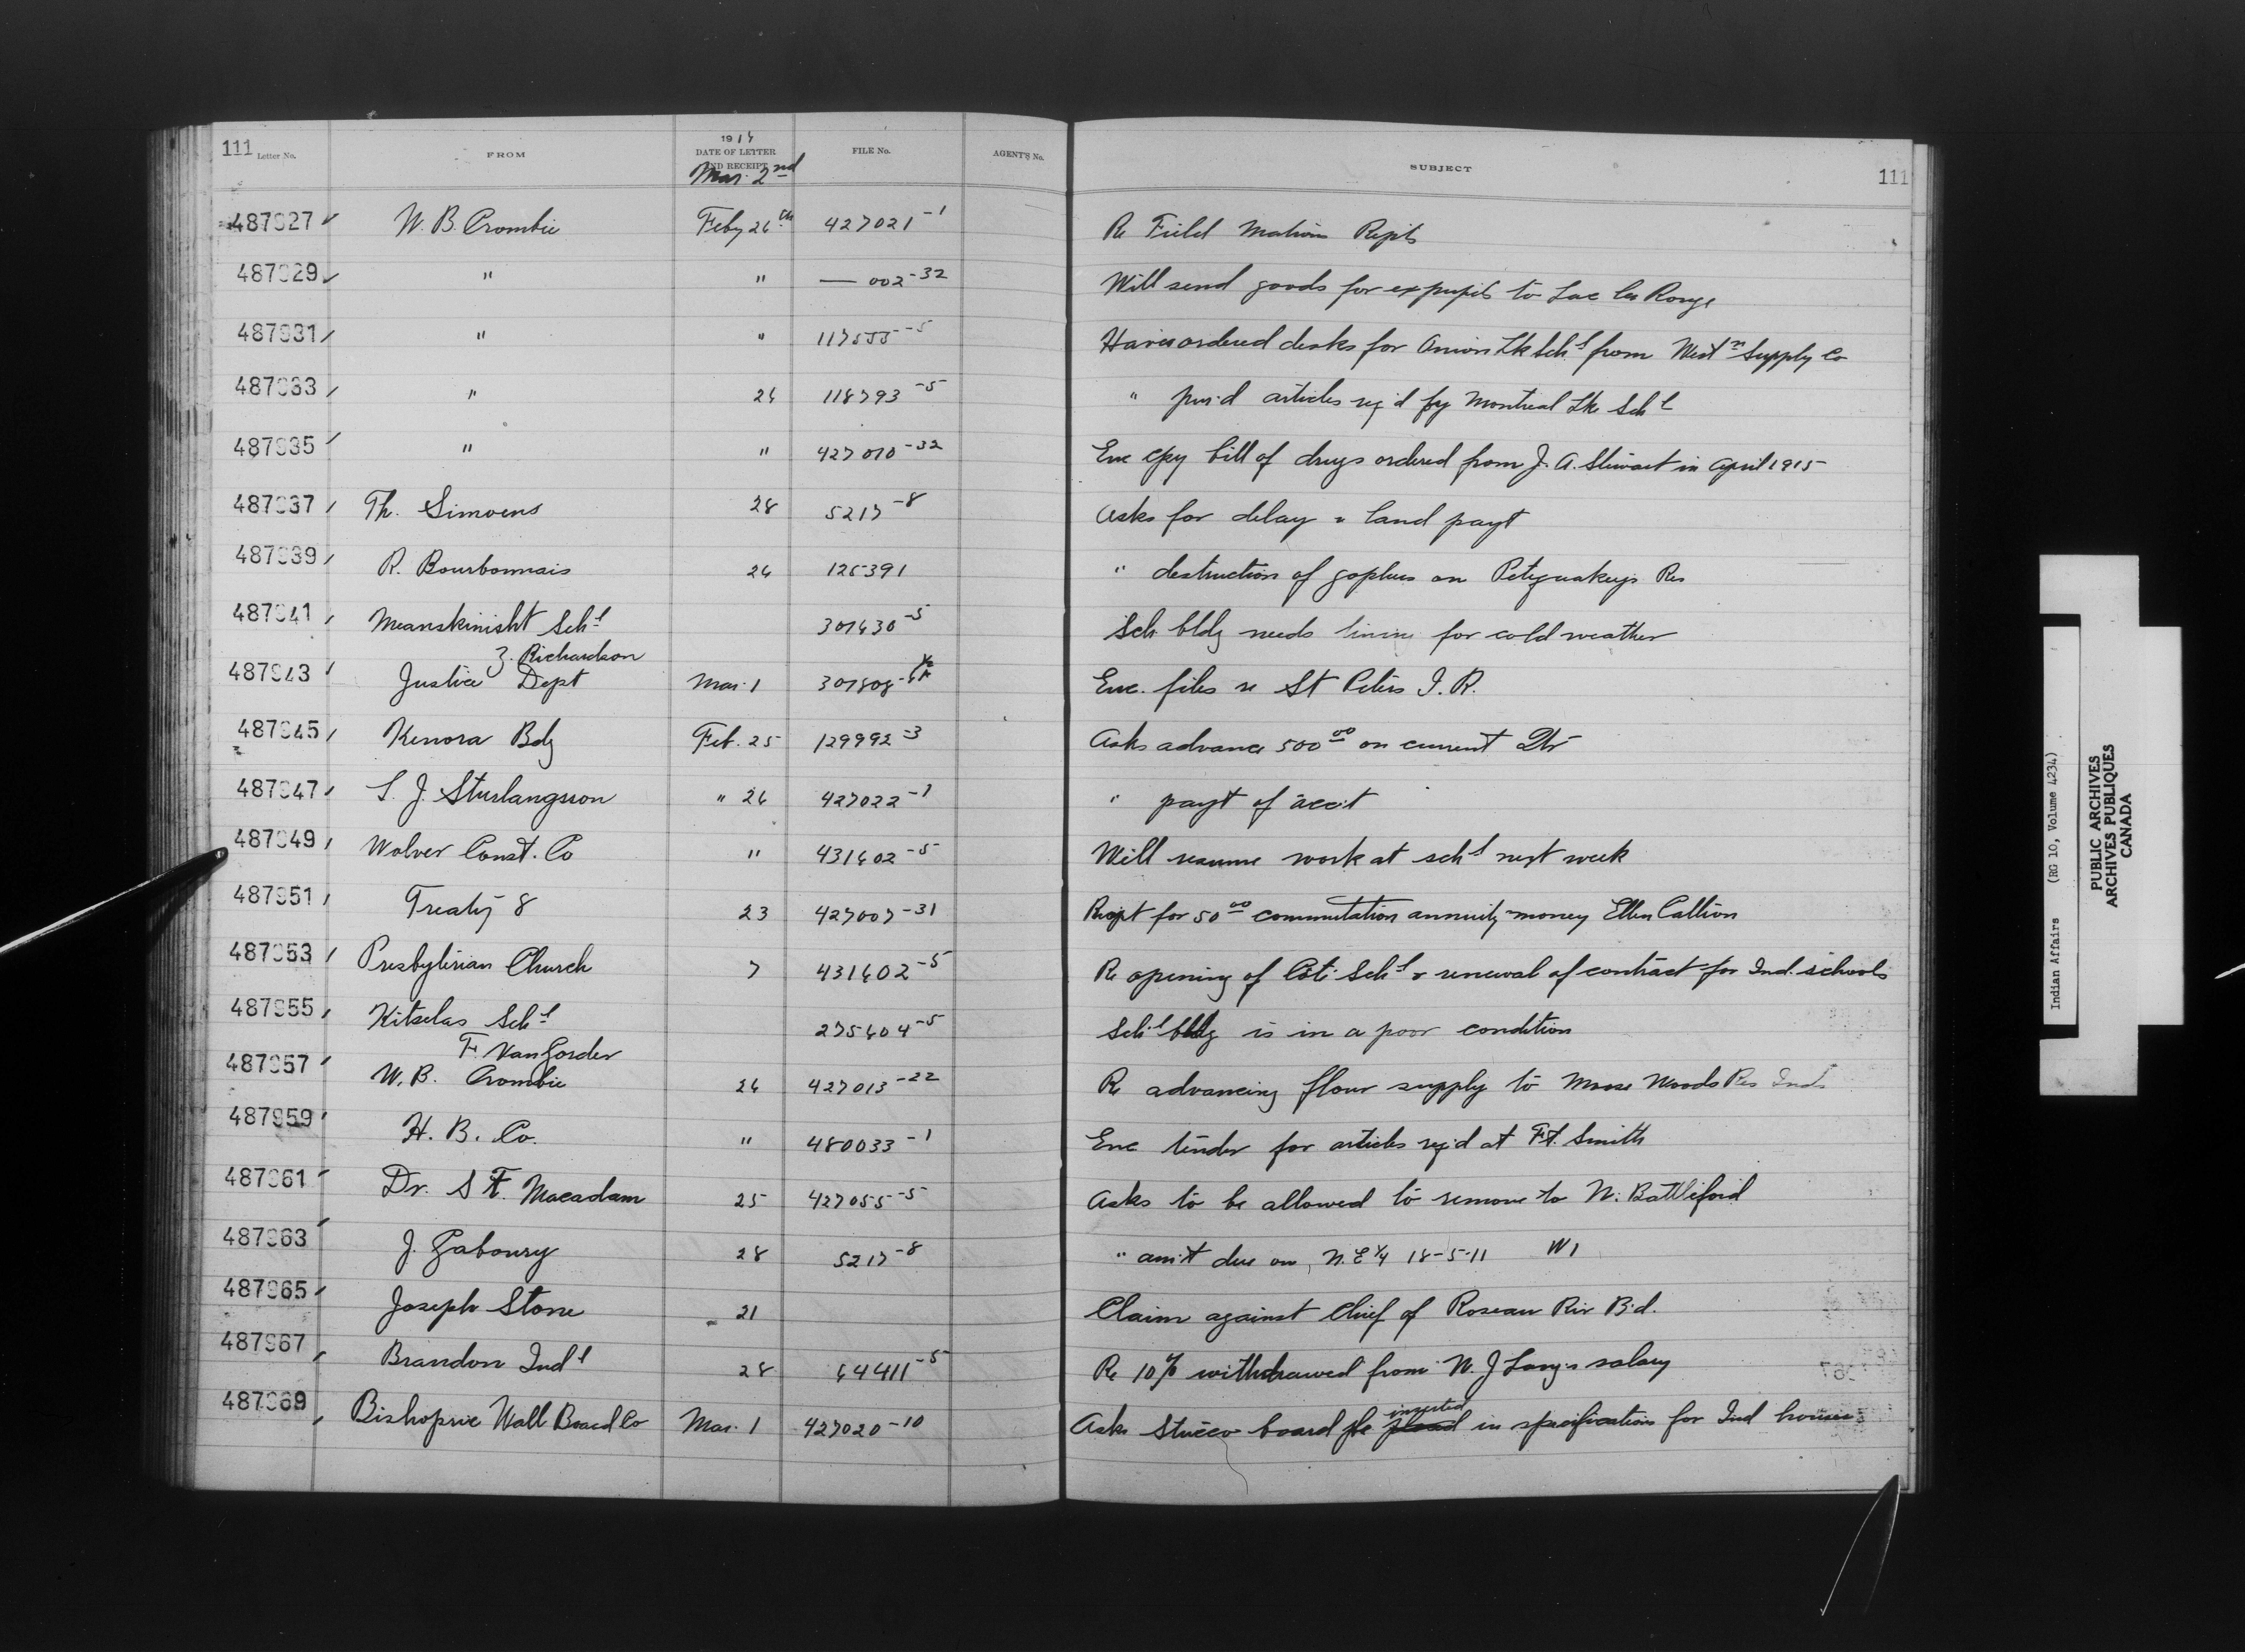 111 Letter No. FROM 1917 DATE OF LETTER AND RECEIPT FILE No. AGENT'S No. SUBJECT 111
Mar. 2nd
487927 W. B. Crombie Feby 26th 427021-1 Re Field Matrons Repts
487929 " " — 002-32 Will send goods for expupils to Lac la Ronge
487931 " " 117555-5 Have ordered desks for Onion Lk Schl from Westn Supply Co
487933 " 26 118793-5 " pur'd articles req'd by Montreal Lk Schl
487935 " " 427010-32 Enc cpy bill of drugs ordered from J. A. Stewart in April 1915
487937 Th. Simoens 28 5217-8 Asks for delay land payt
487939 R. Bourbonnais 26 125391 " destruction of gophers on Petequakeys Res
487941 Meanskinisht Schl 301430-5 Sch bldg needs lining for cold weather
Z. Richardson
487943 Justice Dept Mar. 1 Enc. files re St Peters I. R.
487945 Kenora Bdg Feb. 25 129992-3 Asks advance 500 00 on current Qtr
487947 S. J. Sturlangsson " 26 427022-1 " payt of acc't
487949 Wolver Const. Co " 431602-5 Will resume work at schl next week
487951 Treaty 8 23 427007-31 Recpt for 50 00 commutation annuity money Ellen
487953 Presbyterian Church 7 431602-5 Re opening of Cote Schl & renewal of contract for Ind. schools
487955 Kitselas Schl 275604-5 Schl bldg is in a poor condition
F. VanGorder
487957 W. B. Crombie 26 427013-22 Re advancing flour supply to Moose Woods Res Inds
487959 H. B. Co. " 480033-1 Enc tender for articles req'd at Ft. Smith
487961 Dr. S. F. Macadam 25 427055-5 Asks to be allowed to remove to N. Battleford
487963 J. Gaboury 28 5217-8 " am't due on N. E 1/4 18-5-11 W1
487965 Joseph Stone 21 Claim against Chief of Roseau Riv B'd.
487967 Brandon Indl 28 64411-5 Re 10% withdrawed from salary
487969 Bishopric Wall Board Co Mar. 1 427020-10 Asks Stucco board be inserted in specification for Ind houses
Indian Affairs (RG 10, Volume 4234)
PUBLIC ARCHIVES
ARCHIVES PUBLIQUES
CANADA